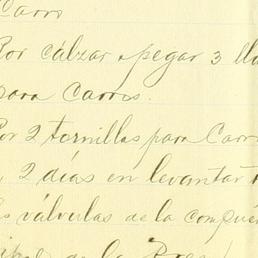 Carro
Por calzar y pegar 3 lla
para carros.
Por 2 tornillos para Carr
2 días en levantar
as válvulas de la compue
de la Pres